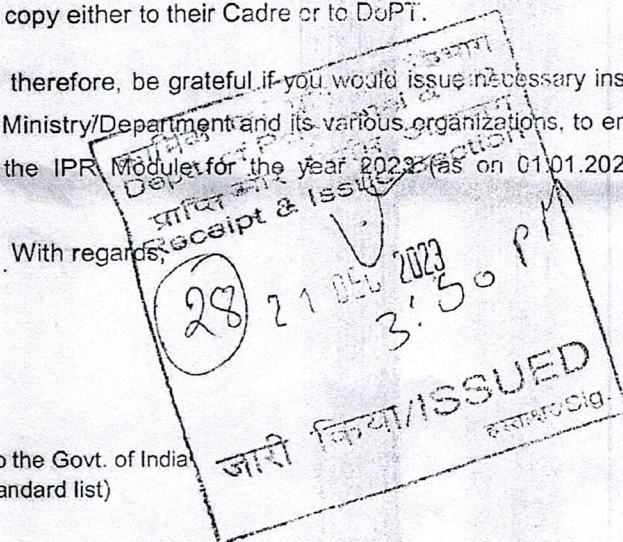 copy either to their Cadre or to DoPT.
therefore, be grateful if you would issue necessary ins
Ministry/Department and its various organizations, to en
the IPR Module for the year 2023 (as on 01.01.202
With regards,
प्राप्ति और
Receipt & Issue Section
28 21 DEC 2023
3:50 PM
जारी किया/ISSUED
हस्ताक्षर/Sig.
o the Govt. of India
andard list)